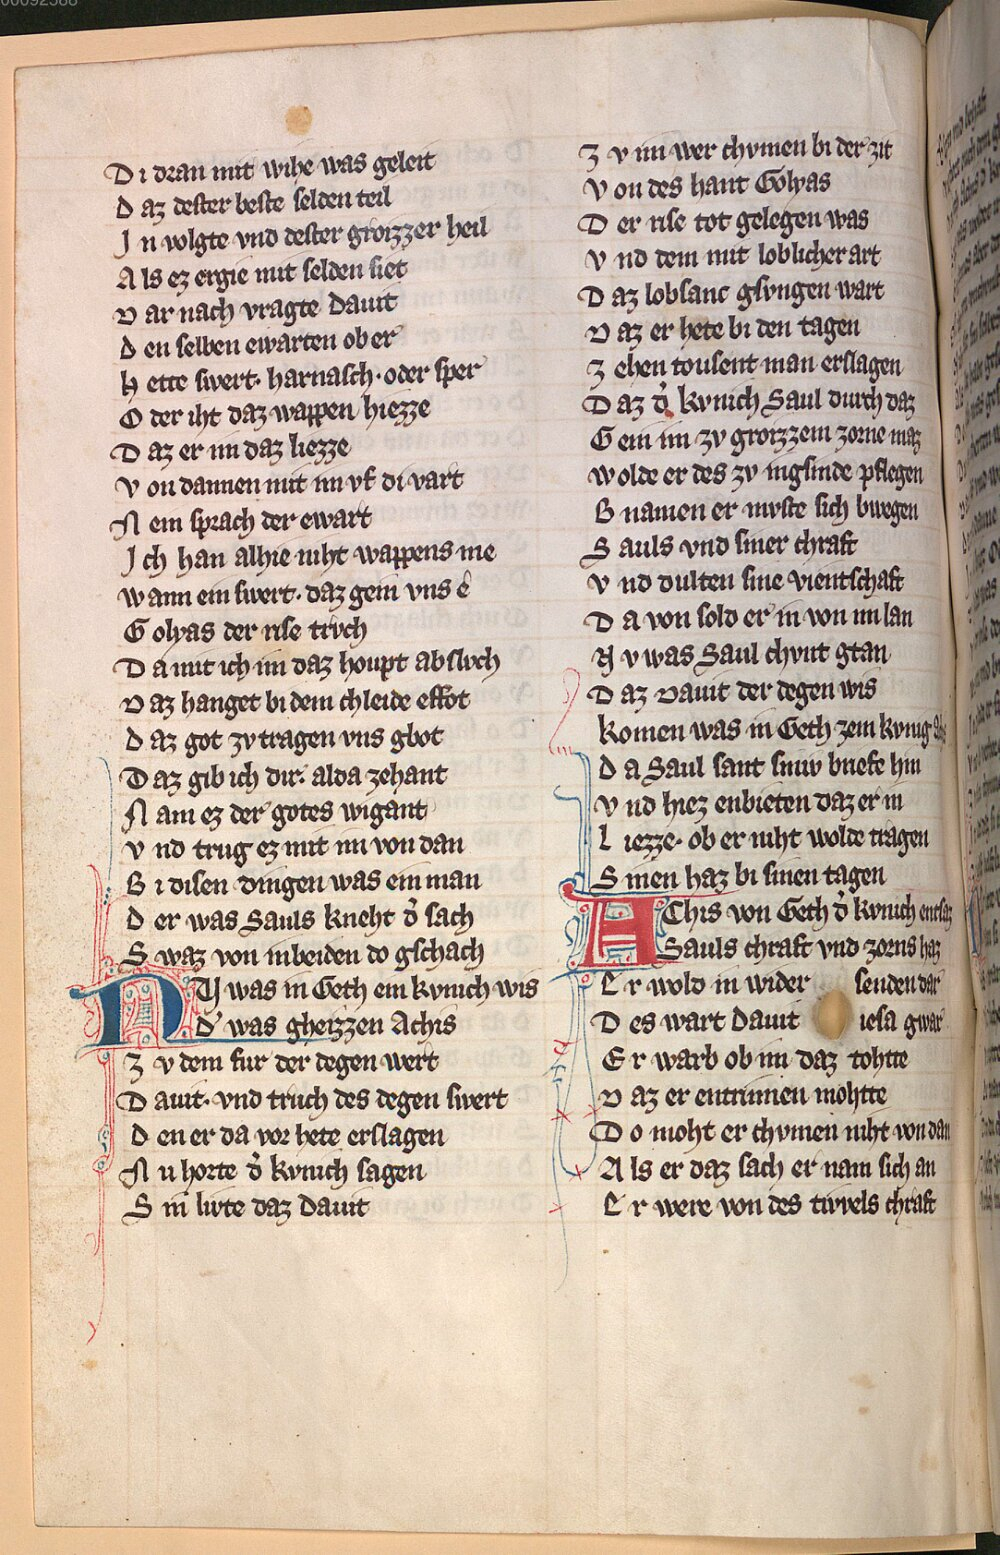 00092588
Di dran mit wihe was geleit
Daz dester beste selden teil
In volgte vnd dester groizzer heil
Als ez ergie mit selden siet
Dar nach vragte Dauit
Den selben ewarten ob er
Hette swert· harnasch· oder sper
Oder iht daz wappen hiezze
Daz er im daz liezze
Von dannen mit im vf di vart
Nein sprach der ewart
Ich han alhie niht wappens me
Wann ein swert· daz gein vns e
Golyas der rise trvch
Da mit ich im daz houpt ab slvch
Daz hanget bi dem chleide effot
Daz got zv tragen vns gbot
Daz gib ich dir· alda zehant
Nam ez der gotes wigant
Vnd trug ez mit im von dan
Bi disen dingen was ein man
Der was Sauls kneht d' sach
Swaz von in beiden do gschach
NV was in Geth ein kvnich wis
d' was gheizzen Achis
Zv dem fur der degen wert
Dauit· vnd truch des degen swert
Den er da vor hete erslagen
Nu horte d' kvnich sagen
Sin livte daz Dauit
Zv im wer chvmen bi der zit
Von des hant Golyas
Der rise tot gelegen was
Vnd dem mit loblicher art
Daz lobsanc gsvngen wart
Daz er hete bi den tagen
Zehen tousent man erslagen
Daz d' kvnich Saul durch daz
Gein im zv groizzem zorne maz
Wolde er des zv ingsinde pflegen
Bnamen er mvste sich bwegen
Sauls vnd siner chraft
Vnd dulten sine vientschaft
Da von sold er in von im lan
Nv was Saul chvnt gtan
Daz Dauit der degen wis
Komen was in Geth zem kvnig
Da Saul sant sinw briefe hin
Vnd hiez enbieten daz er in
Liezze· ob er niht wolde tragen
Sinen haz bi sinen tagen
AChis von Geth d' kvnich entsaz
Sauls chraft vnd zorns haz
Er wold in wider senden dar
Des wart Dauit iesa gwar
Er warb ob im daz tohtte
Daz er entrinnen mohtte
Do moht er chvmen niht von dan
Als er daz sach er nam sich an
Er were von des tivvels chraft